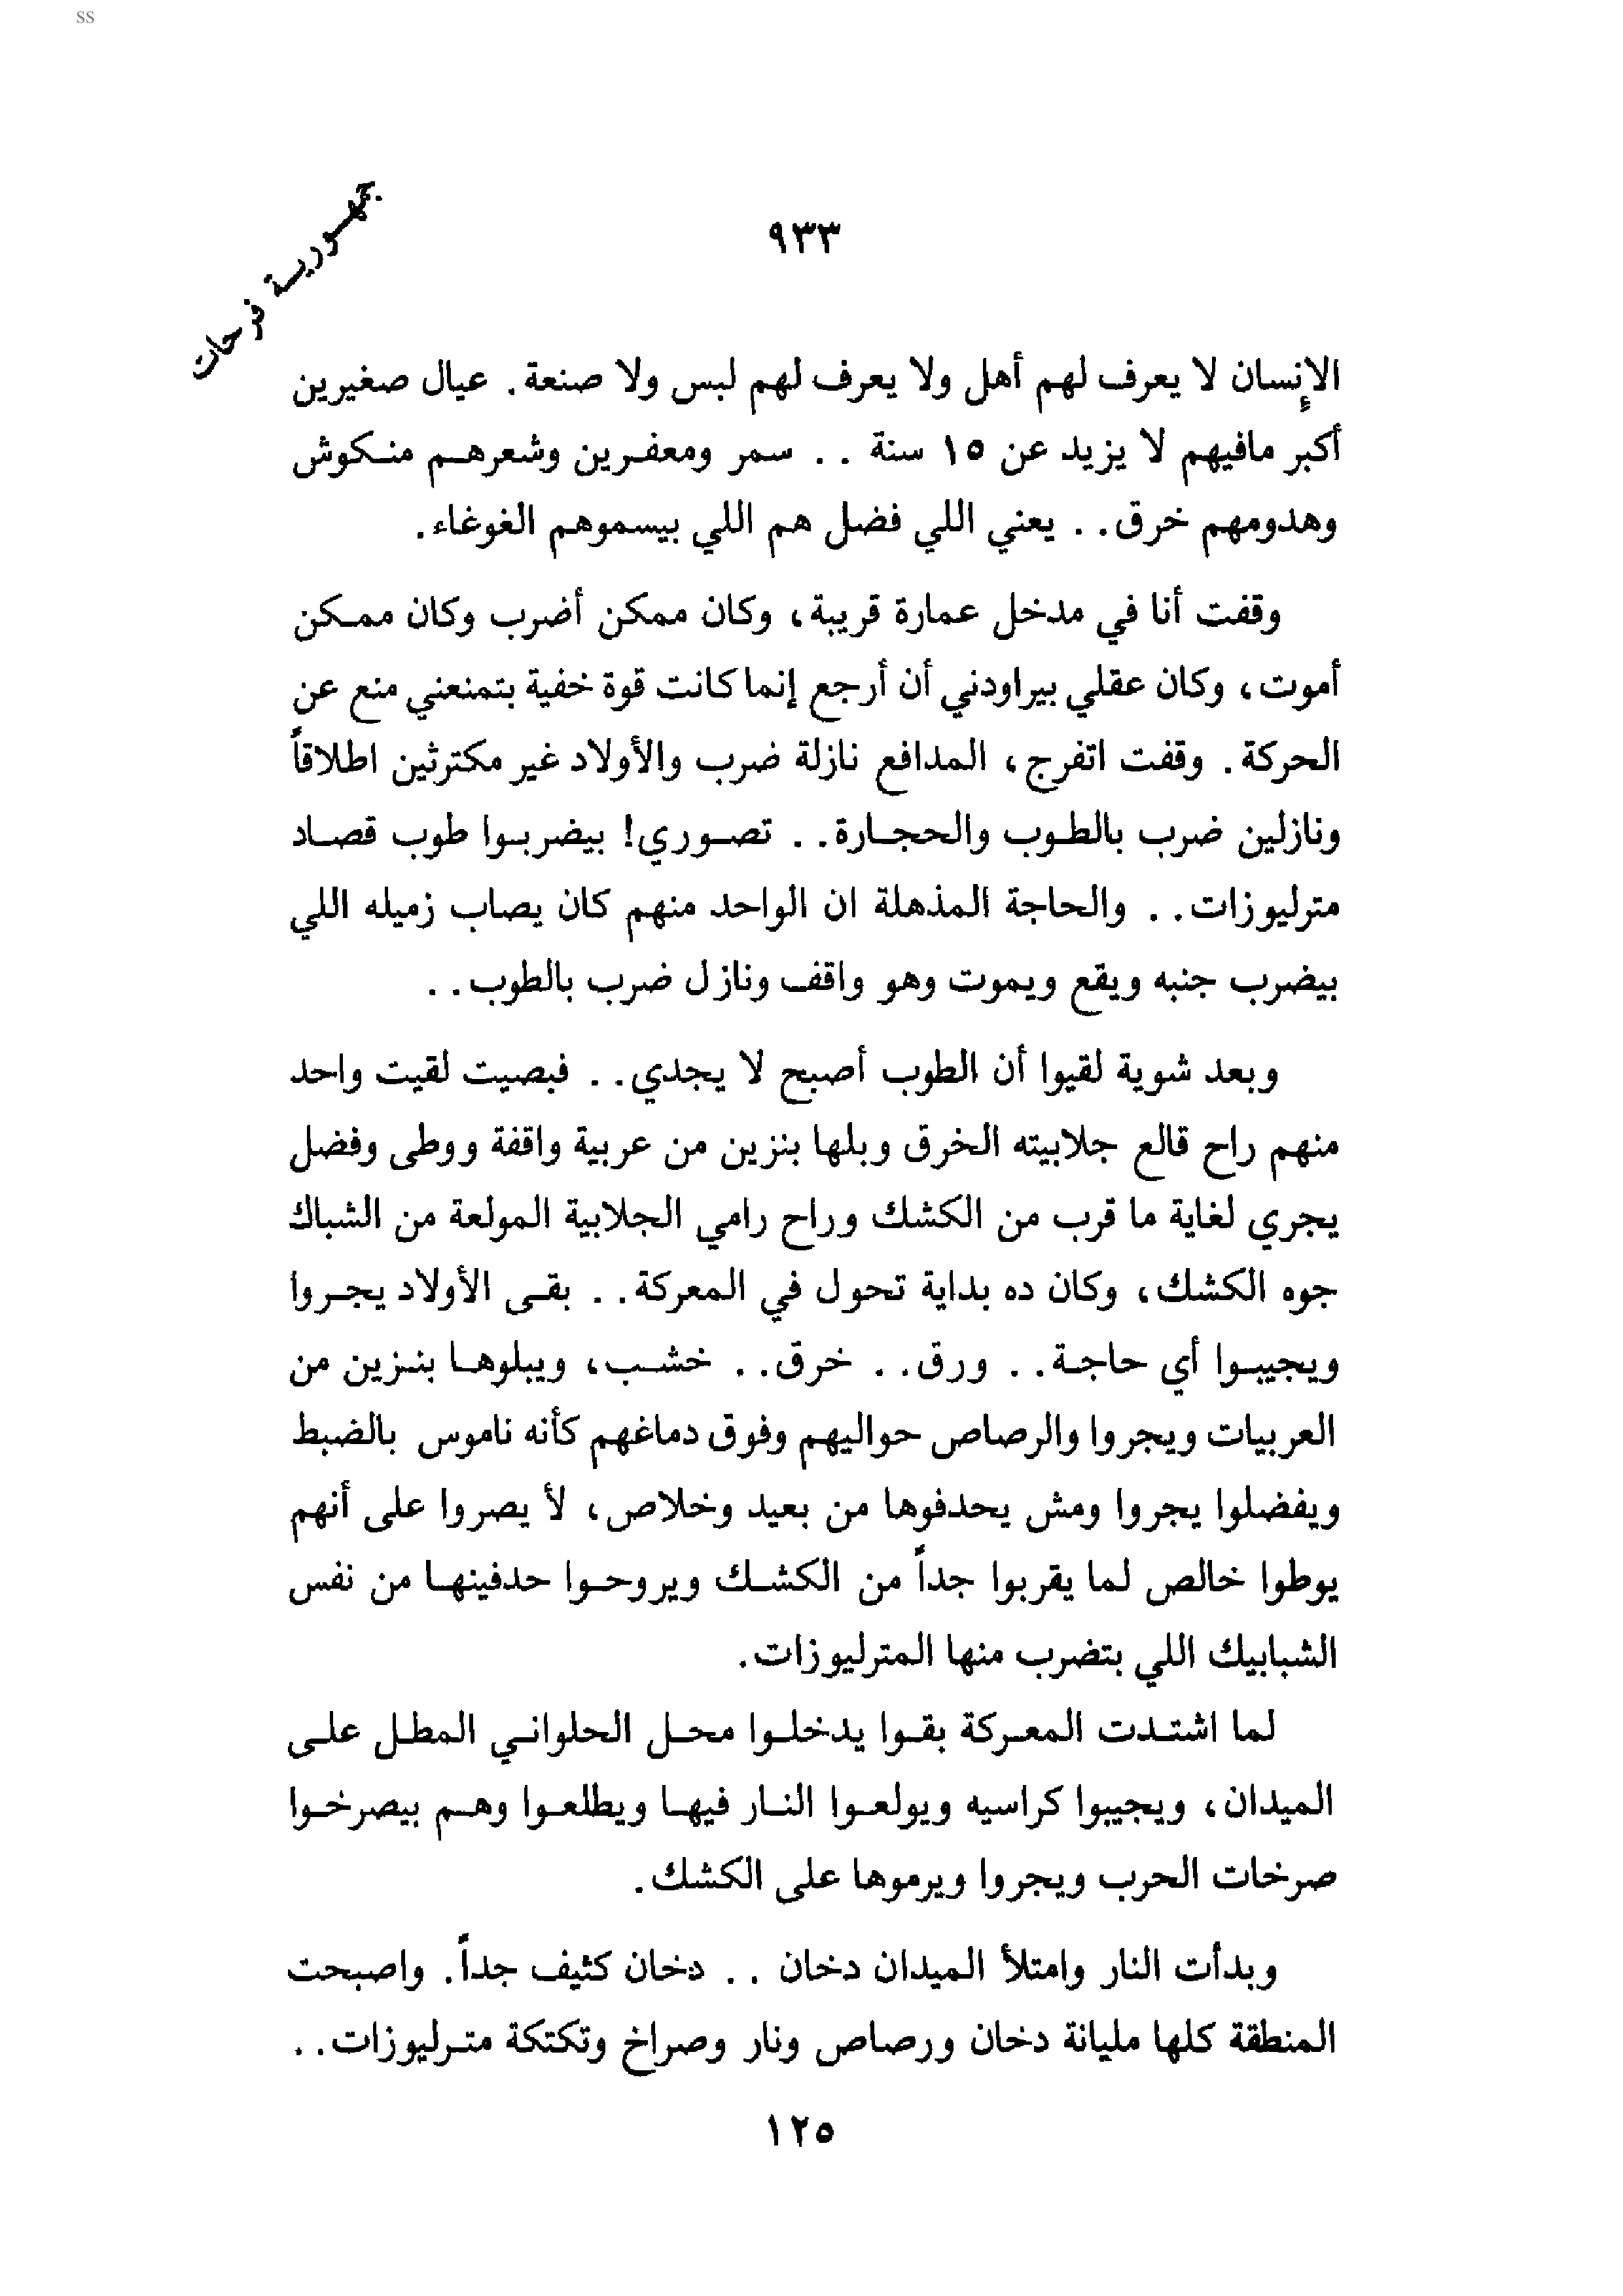 ss
جمهورية فرحات
٩٣٣
الإنسان لا يعرف لهم أهل ولا يعرف لهم لبس ولا صنعة. عيال صغيرين
أكبر مافيهم لا يزيد عن ١٥ سنة .. سمر ومعفرين وشعرهم منكوش
وهدومهم خرق.. يعني اللي فضل هم اللي بيسموهم الغوغاء.
وقفت أنا في مدخل عمارة قريبة، وكان ممكن أضرب وكان ممكن
أموت، وكان عقلي بيراودني أن أرجع إنما كانت قوة خفية بتمنعني منع عن
الحركة. وقفت اتفرج، المدافع نازلة ضرب والأولاد غير مكترثين اطلاقاً
ونازلين ضرب بالطوب والحجارة.. تصوري! بيضربوا طوب قصاد
مترليوزات.. والحاجة المذهلة ان الواحد منهم كان يصاب زميله اللي
بيضرب جنبه ويقع ويموت وهو واقف ونازل ضرب بالطوب..
وبعد شوية لقيوا أن الطوب أصبح لا يجدي.. فبصيت لقيت واحد
منهم راح قالع جلابيته الخرق وبلها بنزين من عربية واقفة ووطى وفضل
يجري لغاية ما قرب من الكشك وراح رامي الجلابية المولعة من الشباك
جوه الكشك، وكان ده بداية تحول في المعركة.. بقى الأولاد يجروا
ويجيبوا أي حاجة.. ورق.. خرق.. خشب، ويبلوها بنزين من
العربيات ويجروا والرصاص حواليهم وفوق دماغهم كأنه ناموس بالضبط
ويفضلوا يجروا ومش يحدفوها من بعيد وخلاص، لأ يصروا على أنهم
يوطوا خالص لما يقربوا جداً من الكشك ويروحوا حدفينها من نفس
الشبابيك اللي بتضرب منها المترليوزات.
لما اشتدت المعركة بقوا يدخلوا محل الحلواني المطل على
الميدان، ويجيبوا كراسيه ويولعوا النار فيها ويطلعوا وهم بيصرخوا
صرخات الحرب ويجروا ويرموها على الكشك.
وبدأت النار وامتلأ الميدان دخان .. دخان كثيف جداً. واصبحت
المنطقة كلها مليانة دخان ورصاص ونار وصراخ وتكتكة مترليوزات..
١٢٥